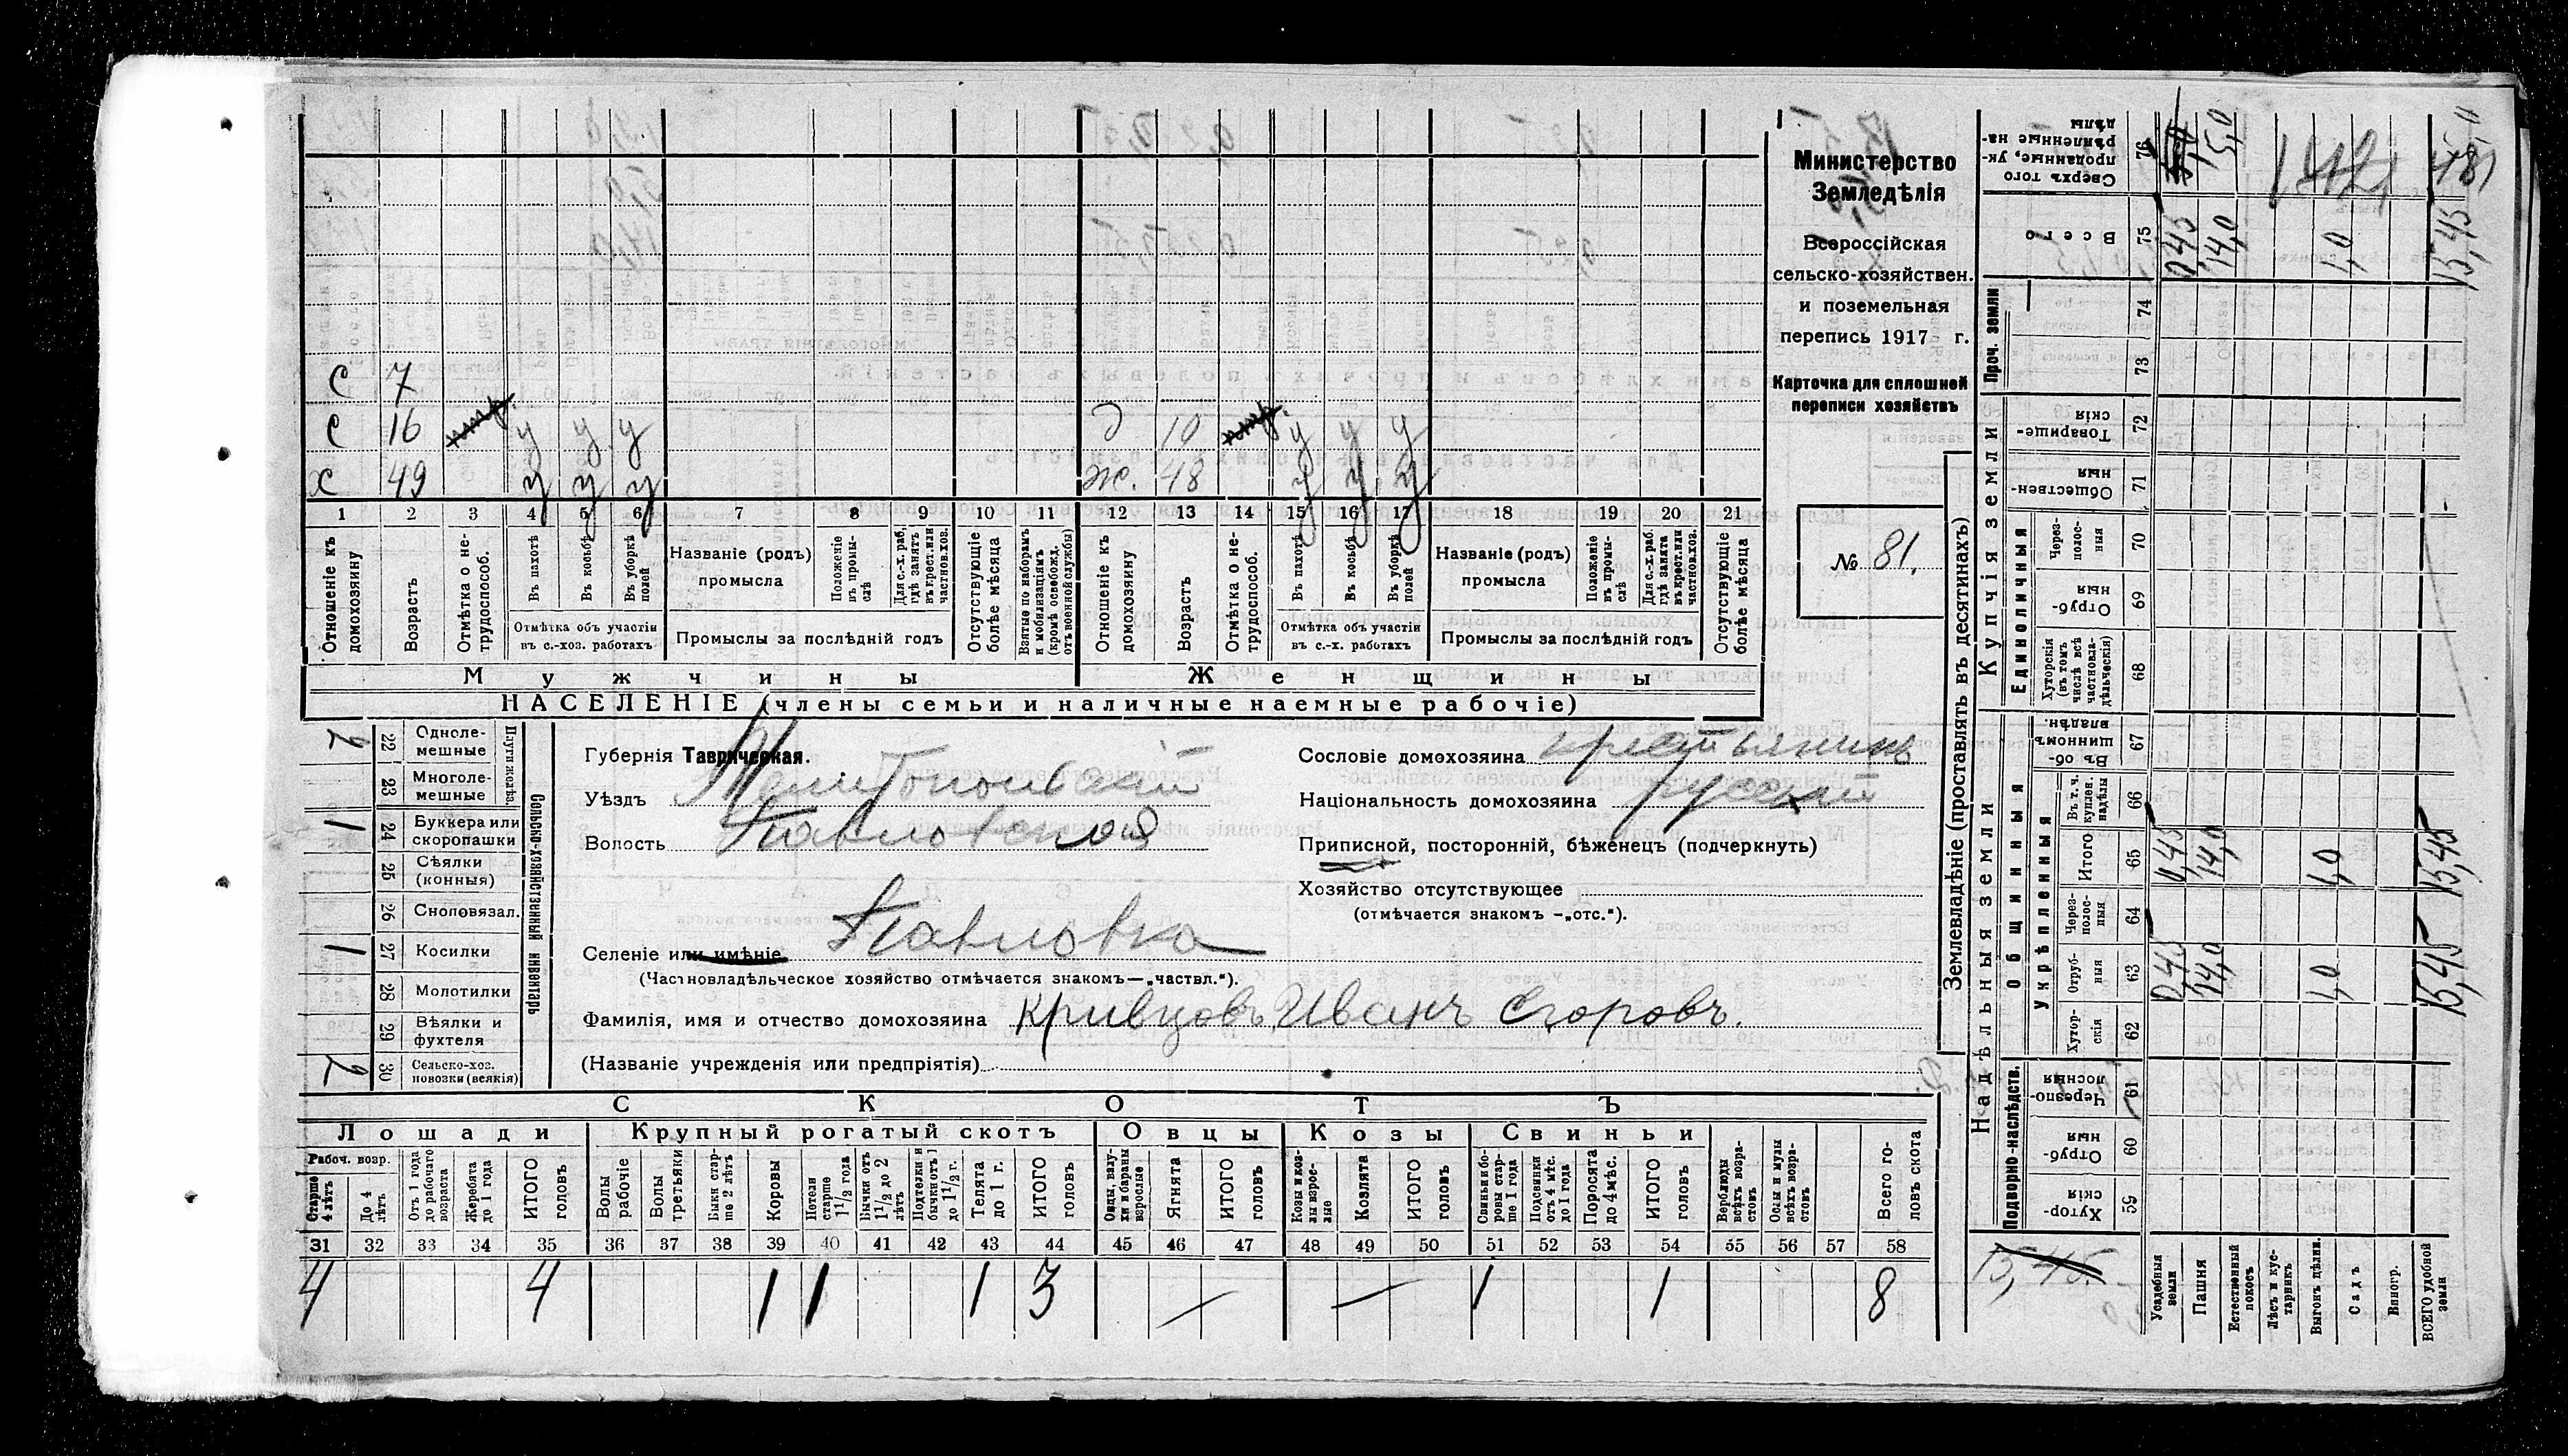 С 7
С 16 у у у д 10 у у у
Х 49 у у у ж. 48 у у у
1 2 3 4 5 6 7 8 9 10 11 12 13 14 15 16 17 18 19 20 21
Отношеніе къ домохозяину
Возрастъ
Отмѣтка о нетрудоспособ.
Въ пахотѣ
Въ косьбѣ
Въ уборкѣ полей
Отмѣтка объ участіи въ с.-хоз. работахъ
Названіе (родъ) промысла
Положеніе въ промыслѣ
Для с.-х. раб., гдѣ занятъ въ крест. или частнов. хоз.
Промыслы за послѣдній годъ
Отсутствующіе болѣе мѣсяца
Взятые по наборамъ и мобилизаціямъ (кромѣ освобожд. отъ военной службы)
Отношеніе къ домохозяину
Возрастъ
Отмѣтка о нетрудоспособ.
Въ пахотѣ
Въ косьбѣ
Въ уборкѣ полей
Отмѣтка объ участіи въ с.-х. работахъ
Названіе (родъ) промысла
Положеніе въ промыслѣ
Для с.-х. раб. гдѣ занята въ крест. или частнов. хоз.
Промыслы за послѣдній годъ
Отсутствующіе болѣе мѣсяца
Мужчины Женщины
НАСЕЛЕНІЕ (члены семьи и наличные наемные рабочіе)
Министерство
Земледѣлія
Всероссійская
сельско-хозяйствен.
и поземельная
перепись 1917 г.
Карточка для сплошной
переписи хозяйствъ
№ 81.
Сельско-хозяйственный инвентарь
Плуги желѣз.
2 22 Однолемешные
23 Многолемешные
1 24 Буккера или скоропашки
25 Сѣялки (конныя)
26 Сноповязал.
1 27 Косилки
28 Молотилки
29 Вѣялки и фухтеля
2 30 Сельско-хоз. повозки (всякія)
Губернія Таврическая.
Уѣздъ Мелитопольскій
Волость Павловской
Селеніе или имѣніе Павловка
(Частновладѣльческое хозяйство отмѣчается знакомъ—„частвл.“).
Фамилія, имя и отчество домохозяина Кривцовъ Иванъ Егоровъ.
(Названіе учрежденія или предпріятія)
Сословіе домохозяина крестьянинъ
Національность домохозяина русскій
Приписной, посторонній, бѣженецъ (подчеркнуть)
Хозяйство отсутствующее
(отмѣчается знакомъ -„отс.“).
СКОТЪ
Лошади Крупный рогатый скотъ Овцы Козы Свиньи
Рабоч. возр.
Старше 4 лѣтъ
До 4 лѣтъ
Отъ 1 года до рабочаго возраста
Жеребята до 1 года
ИТОГО головъ
Волы рабочіе
Волы третьяки
Быки старше 2 лѣтъ
Коровы
Нетели старше 1 1/2 года
Бычки отъ 1 1/2 до 2 лѣтъ
Подтелки и бычки отъ 1 до 1 1/2 г.
Телята до 1 г.
ИТОГО головъ
Овцы, валухи и бараны взрослые
Ягнята
ИТОГО головъ
Козы и козлы взрослые
Козлята
ИТОГО головъ
Свиньи и боровы старше 1 года
Подсвинки отъ 4 мѣс. до 1 года
Поросята до 4 мѣс.
ИТОГО головъ
Верблюды всѣхъ возрастовъ
Ослы и мулы всѣхъ возрастовъ
Всего головъ скота
31 32 33 34 35 36 37 38 39 40 41 42 43 44 45 46 47 48 49 50 51 52 53 54 55 56 57 58
4 4 1 1 1 3 — — 1 1 8
Землевладѣніе (проставлять въ десятинахъ)
Надѣльныя земли
Купчія земли
Проч. земли
Подворно-наслѣдств.
Общинныя
Укрѣпленныя
Единоличныя
Хуторскія 59
Отрубныя 60
Черезполосныя 61
Хуторскія 62
Отрубныя 63 0,45 14,0 1,0 15,45
Черезполосныя 64
Итого 65 0,45 14,0 1,0 15,45
Въ т. ч. куплен. надѣлы 66
Въ общинномъ владѣн. 67
Хуторскія (въ томъ числѣ всѣ частновладѣльческія) 68
Отрубныя 69
Черезполосныя 70
Общественныя 71
Товарищескія 72
73
74
Всего 75 0,45 14,0 1,0 15,45
Сверхъ того проданные, укрѣпленные надѣлы 76 15,0
15,45.
Усадебныя земли
Пашня
Естественный покосъ
Лѣсъ и кустарникъ
Выгонъ дѣлин.
Садъ
Виногр.
ВСЕГО удобной земли